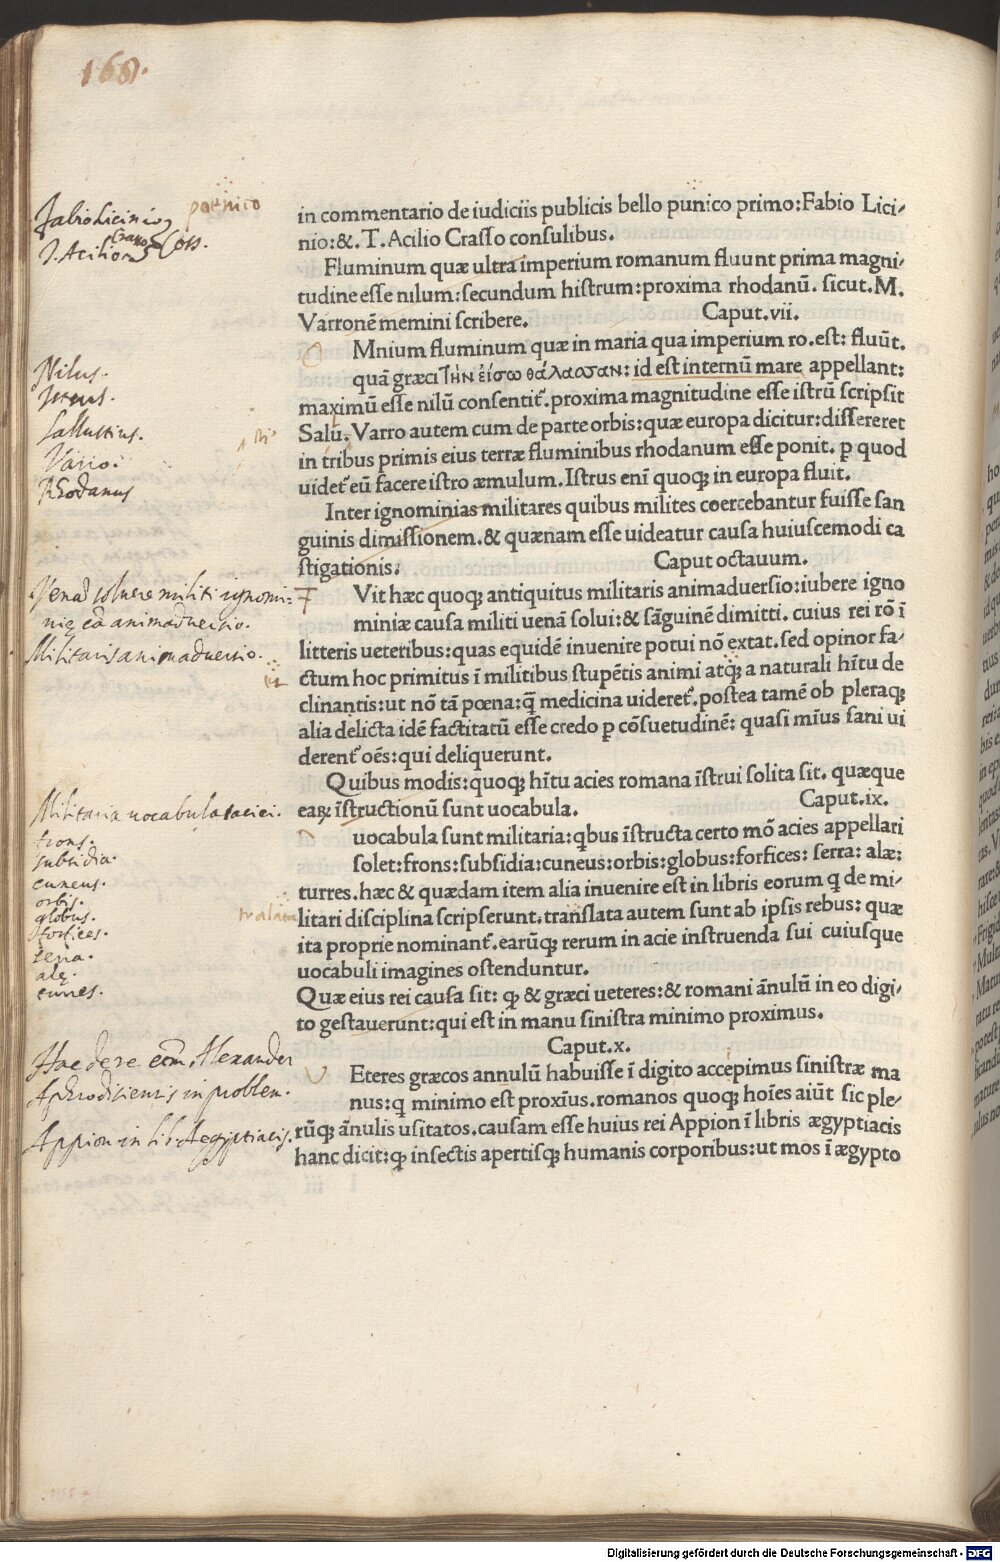 168.
Fabio Licinio
poenico
T. Acilio Crasso Coss.
in commentario de iudiciis publicis bello punico primo:Fabio Lici/
nio:&.T.Acilio Crasso consulibus.
Fluminum quæ ultra imperium romanum fluunt prima magni/
tudine esse nilum:secundum histrum:proxima rhodanū. sicut.M.
Varronē memini scribere. Caput.vii.
O
Mnium fluminum quæ in maria qua imperium ro.est: fluūt.
quā græci τὴν εἴσω θάλασσαν: id est internū mare appellant:
maximū esse nilū consentit᷑.proxima magnitudine esse istrū scripsit
Salu. Varro autem cum de parte orbis:quæ europa dicitur:dissereret
in tribus primis eius terræ fluminibus rhodanum esse ponit. ꝑ quod
uidet᷑ eū facere istro æmulum.Istrus enī quoqꝫ in europa fluit.
Nilus.
Sallustius.
Varro:
Rhodanus
Inter ignominias militares quibus milites coercebantur fuisse san
guinis dimissionem.& quænam esse uideatur causa huiuscemodi ca
stigationis: Caput octauum.
F
Vit hæc quoqꝫ antiquitus militaris animaduersio:iubere igno
miniæ causa militi uenā solui:& sāguinē dimitti. cuius rei rō ī
litteris ueteribus:quas equidē inuenire potui nō extat.sed opinor fa/
ctum hoc primitus ī militibus stupētis animi atqꝫ a naturali hītu de
clinantis:ut nō tā pœna:q̄ medicina uideret᷑.postea tamē ob pleraqꝫ
alia delicta idē factitatū esse credo ꝑ cōsuetudinē: quasi mīus sani ui
derent᷑ oēs:qui deliquerunt.
Venā soluere militi ignomi=
nię cā animaduersio.
Militaris animaduersio.
Quibus modis:quoqꝫ hītu acies romana īstrui solita sit. quæque
eaꝝ īstructionū sunt uocabula. Caput.ix.
uocabula sunt militaria:qbus īstructa certo mō acies appellari
solet:frons:subsidia:cuneus:orbis:globus:forfices: serra: alæ:
turres.hæc & quædam item alia inuenire est in libris eorum q̇ de mi/
litari disciplina scripserunt.translata autem sunt ab ipsis rebus: quæ
ita proprie nominant᷑.earūqꝫ rerum in acie instruenda sui cuiusque
uocabuli imagines ostenduntur.
Militaria uocabula aciei.
frons.
subsidia.
cuneus.
orbis.
globus.
forfices.
serra.
alę.
turres.
Quæ eius rei causa sit: ꝙ & græci ueteres:& romani ānulū in eo digi/
to gestauerunt:qui est in manu sinistra minimo proximus.
Caput.x.
V
Eteres græcos annulū habuisse ī digito accepimus sinistræ ma
nus:q̇ minimo est proxīus.romanos quoqꝫ hoīes aiūt sic ple/
rūqꝫ ānulis usitatos.causam esse huius rei Appion ī libris ægyptiacis
hanc dicit:ꝙ insectis apertisqꝫ humanis corporibus:ut mos ī ægypto
Hac de re etiam Alexander
Aphrodisiensis in problem.
Appion in lib. Aegyptiacis.
Digitalisierung gefördert durch die Deutsche Forschungsgemeinschaft - DFG